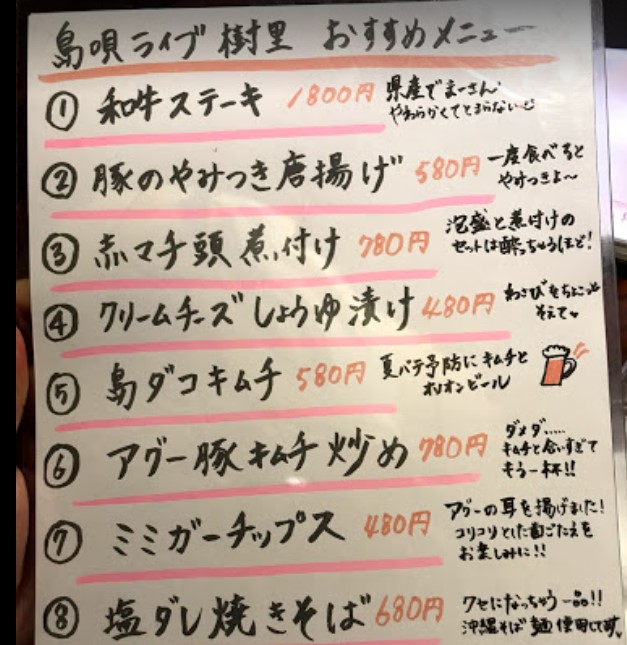 島唄ライブ 樹里 おすすめメニュー
① 和牛ステーキ 1800円 県産でまーさん
やわらかくてとまらない
② 豚のやみつき唐揚げ 580円 一度食べると
やみつきよ〜
③ 赤マチ頭煮付け 780円 泡盛と煮付けの
セットは酔っちゃうほど!
④ クリームチーズしょうゆ漬け 480円 わさびをちょこっと
そえて
⑤ 島ダコキムチ 580円 夏バテ予防にキムチと
オリオンビール
⑥ アグー豚キムチ炒め 780円 ダメダ.....
キムチと合いすぎて
もう一杯!!
⑦ ミミガーチップス 480円 アグーの耳を揚げました!
コリコリとした歯ごたえを
お楽しみに!!
⑧ 塩ダレ焼きそば 680円 クセになっちゃう一品!!
沖縄そば麺使用してます。